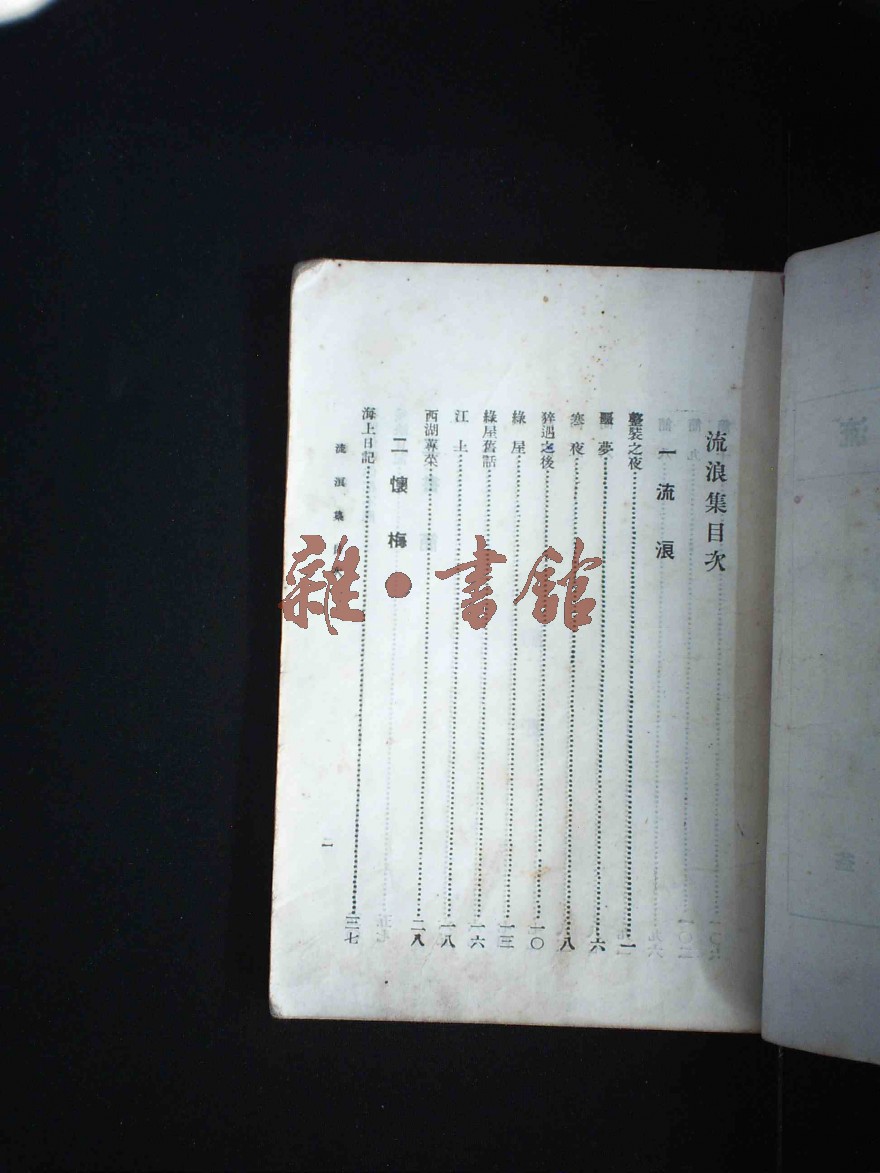 流浪集目次
一 流浪
整裝之夜 一
噩夢 六
寒夜 八
猝遇之後 一〇
綠屋 一三
綠屋舊話 一六
江上 一八
西湖蓴菜 二八
二 懷梅
海上日記 三七
流浪集目次
二
雜·書館